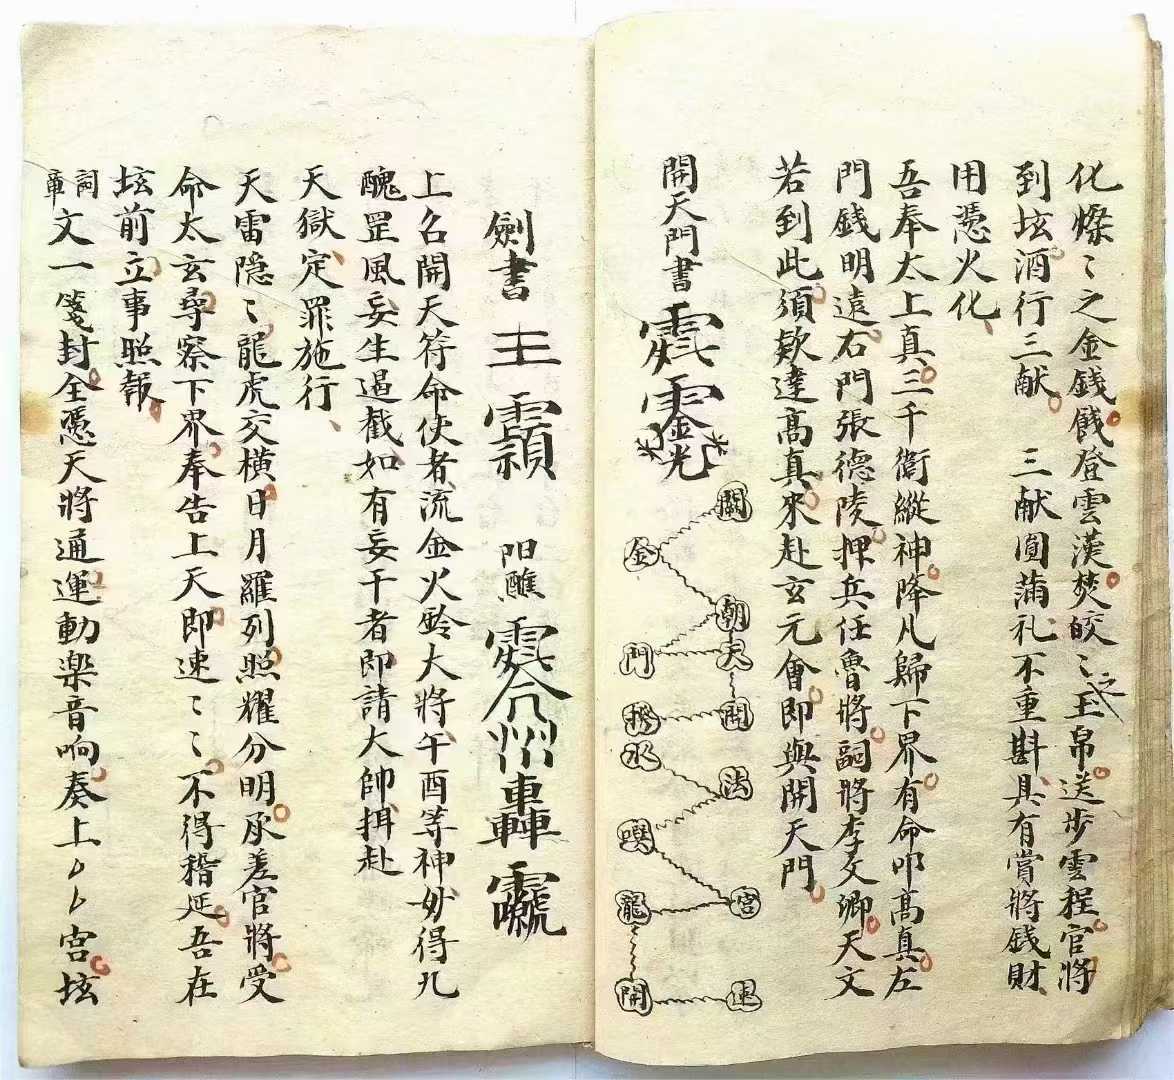 化燦〻之金錢餞登雲漢焚皎〻之玉帛送步雲程官將
到垓酒行三献　三献圓蒲礼不重斟具有賞將錢財
用憑火化
吾奉太上真三千衛縱神降凡歸下界有命叩髙真左
門錢明遠右門張德陵押兵任魯將嗣將李文卿天文
若到此須欵達髙真來赴玄元會即與開天門
開天門書
關
金
朝
門
天
開
水
法
嘿
宮
龍
開
速
劍書
陽醮
上召開天符命使者流金火鈴大將午酉等神妙得九
醜罡風妄生遏截如有妄干者即請大帥摂赴
天獄定罪施行
天雷隠〻龍虎交橫日月羅列照耀分明承差官將受
命太玄尋察下界奉告上天即速〻〻不得稽延吾在
垓前立事照報
詞章文一箋封全憑天將通運動楽音响奏上〻〻宮垓